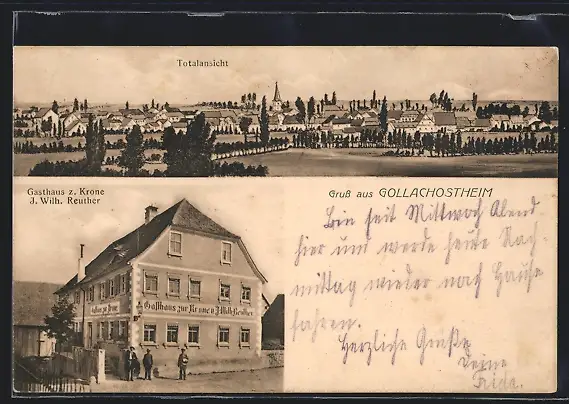 Totalansicht
Gasthaus z. Krone
J. Wilh. Reuther
Gruß aus GOLLACHOSTHEIM
Gasthaus zur Krone v. J. Wilh. Reuther.
Bin seit Mittwoch Abend
hier und werde heute Nach-
mittag wieder nach Hause
fahren.
Herzliche Grüße
Deine
Frida.